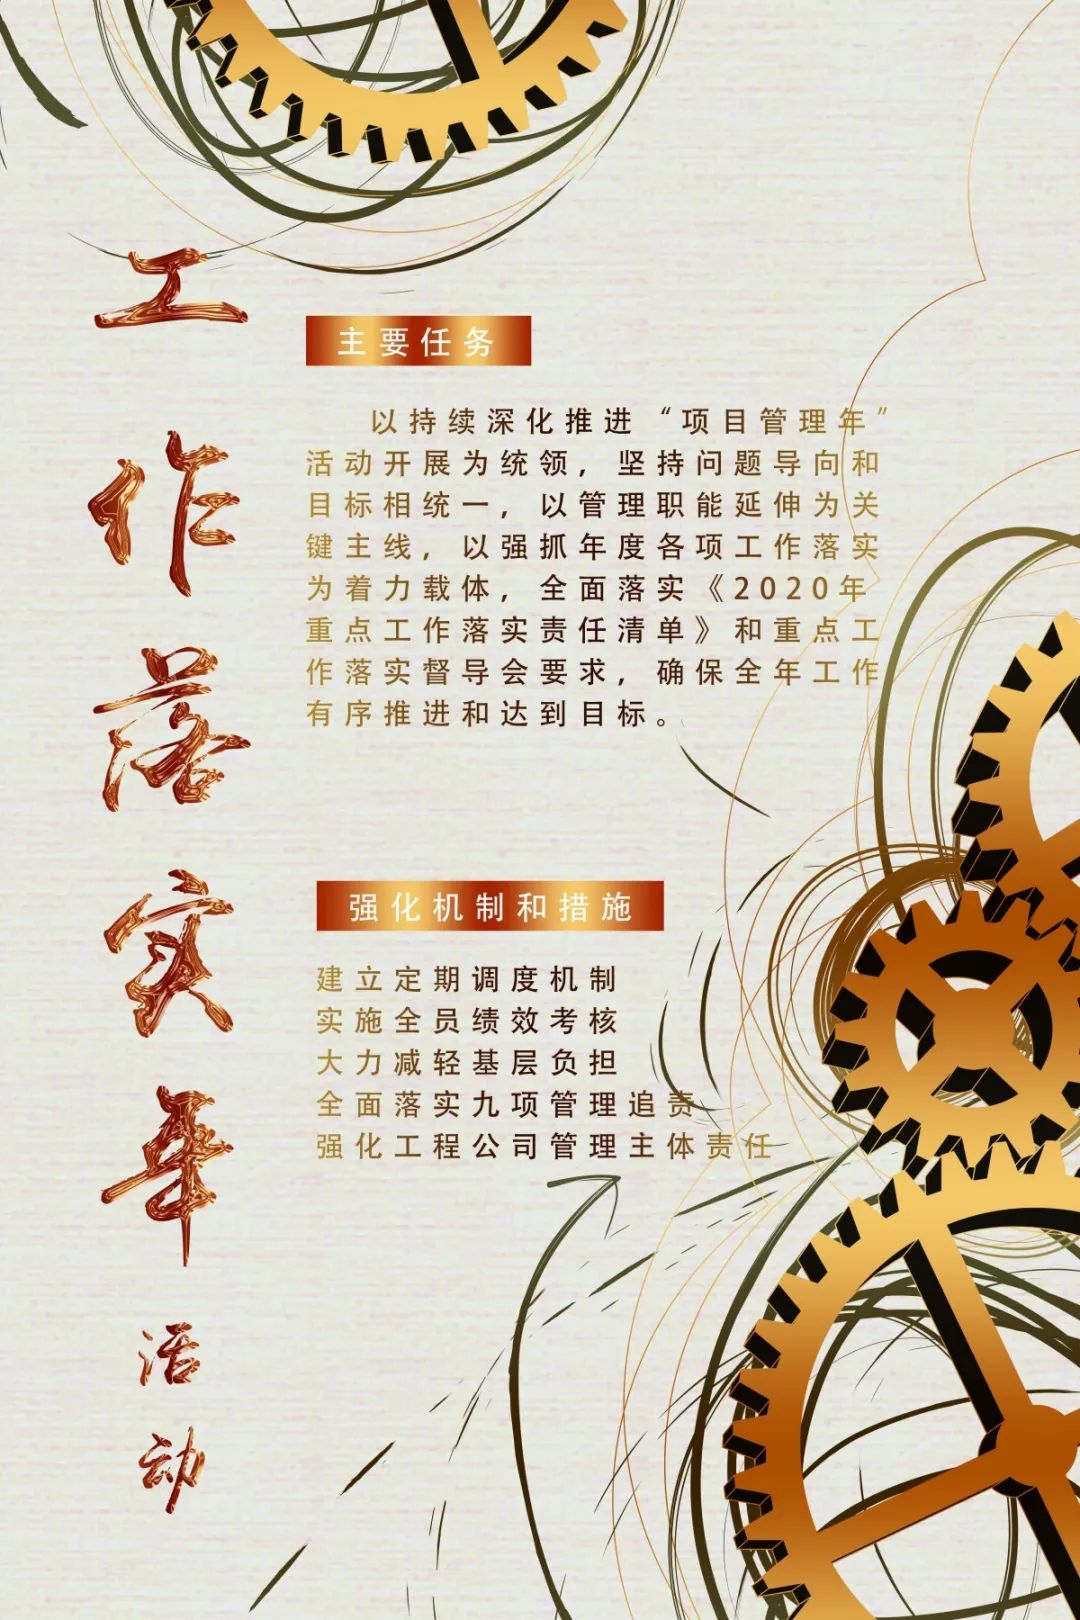 工作落实年活动
主要任务
以持续深化推进“项目管理年”
活动开展为统领，坚持问题导向和
目标相统一，以管理职能延伸为关
键主线，以强抓年度各项工作落实
为着力载体，全面落实《2020年
重点工作落实责任清单》和重点工
作落实督导会要求，确保全年工作
有序推进和达到目标。
强化机制和措施
建立定期调度机制
实施全员绩效考核
大力减轻基层负担
全面落实九项管理追责
强化工程公司管理主体责任